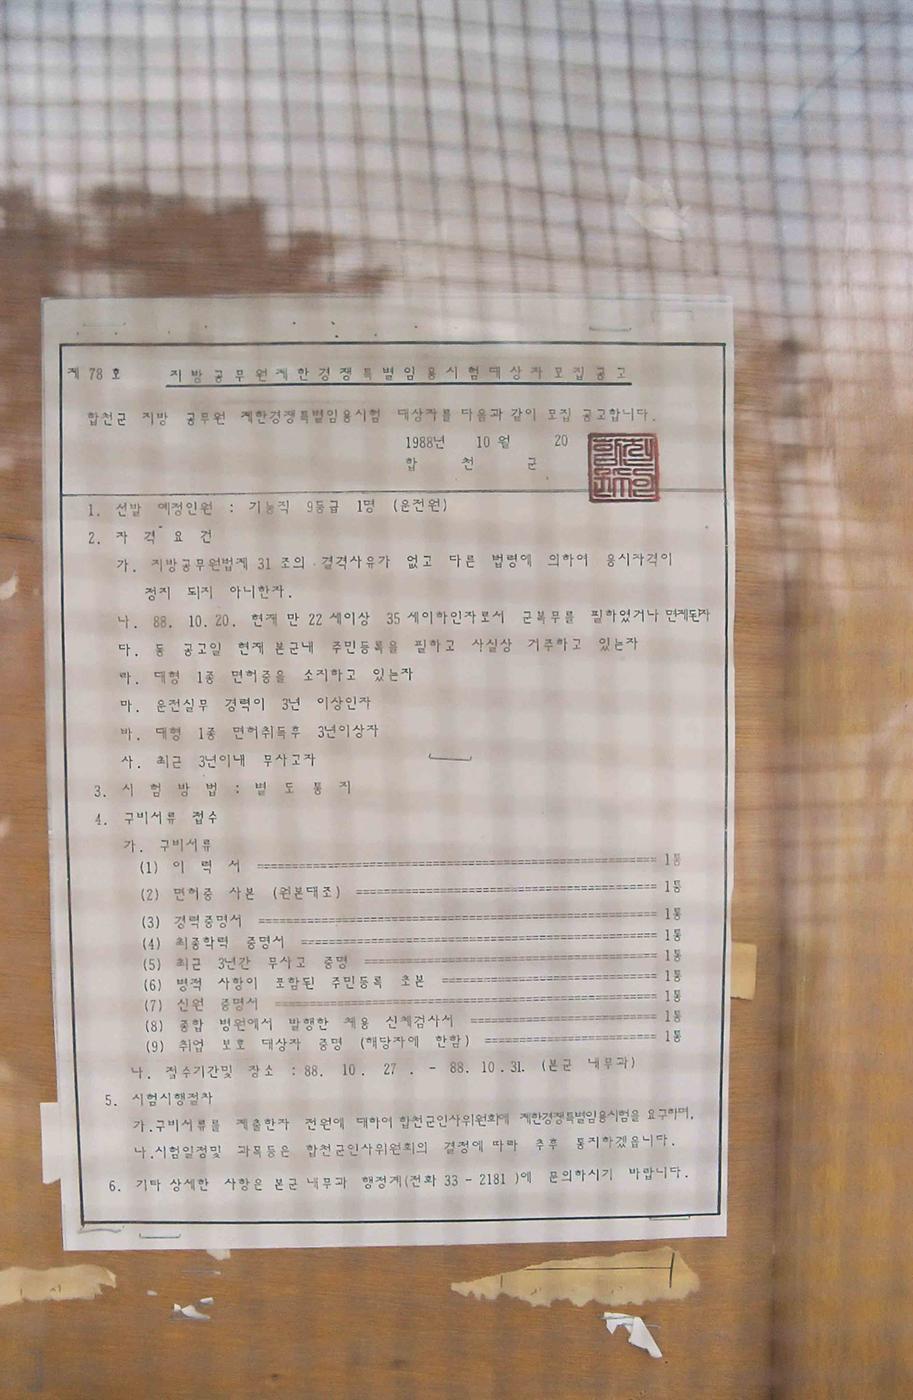 제 78 호 지방공무원제한경쟁특별임용시험대상자모집공고
합천군 지방 공무원 제한경쟁특별임용시험 대상자를 다음과 같이 모집 공고합니다.
1988년 10 월 20
합 천 군
1. 선발 예정인원 : 기능직 9등급 1명 (운전원)
2. 자 격 요 건
가. 지방공무원법제 31 조의 결격사유가 없고 다른 법령에 의하여 응시자격이
정지 되지 아니한자.
나. 88. 10. 20. 현재 만 22 세이상 35 세이하인자로서 군복무를 필하였거나 면제된자
다. 동 공고일 현재 본군내 주민등록을 필하고 사실상 거주하고 있는자
라. 대형 1종 면허증을 소지하고 있는자
마. 운전실무 경력이 3년 이상인자
바. 대형 1종 면허취득후 3년이상자
사. 최근 3년이내 무사고자
3. 시 험 방 법 : 별 도 통 지
4. 구비서류 접수
가. 구비서류
(1) 이 력 서 ================================ 1통
(2) 면허증 사본 (원본대조) ======================== 1통
(3) 경력증명서 ================================ 1통
(4) 최종학력 증명서 ============================ 1통
(5) 최근 3년간 무사고 증명 ======================== 1통
(6) 병적 사항이 포함된 주민등록 초본 ================== 1통
(7) 신원 증명서 =============================== 1통
(8) 종합 병원에서 발행한 채용 신체검사서 ================ 1통
(9) 취업 보호 대상자 증명 (해당자에 한함) =============== 1통
나. 접수기간및 장소 : 88. 10. 27. - 88. 10. 31. (본군 내무과)
5. 시험시행절차
가.구비서류를 제출한자 전원에 대하여 합천군인사위원회에 제한경쟁특별임용시험을 요구하며,
나.시험일정및 과목등은 합천군인사위원회의 결정에 따라 추후 통지하겠읍니다.
6. 기타 상세한 사항은 본군 내무과 행정계(전화 33 - 2181 )에 문의하시기 바랍니다.